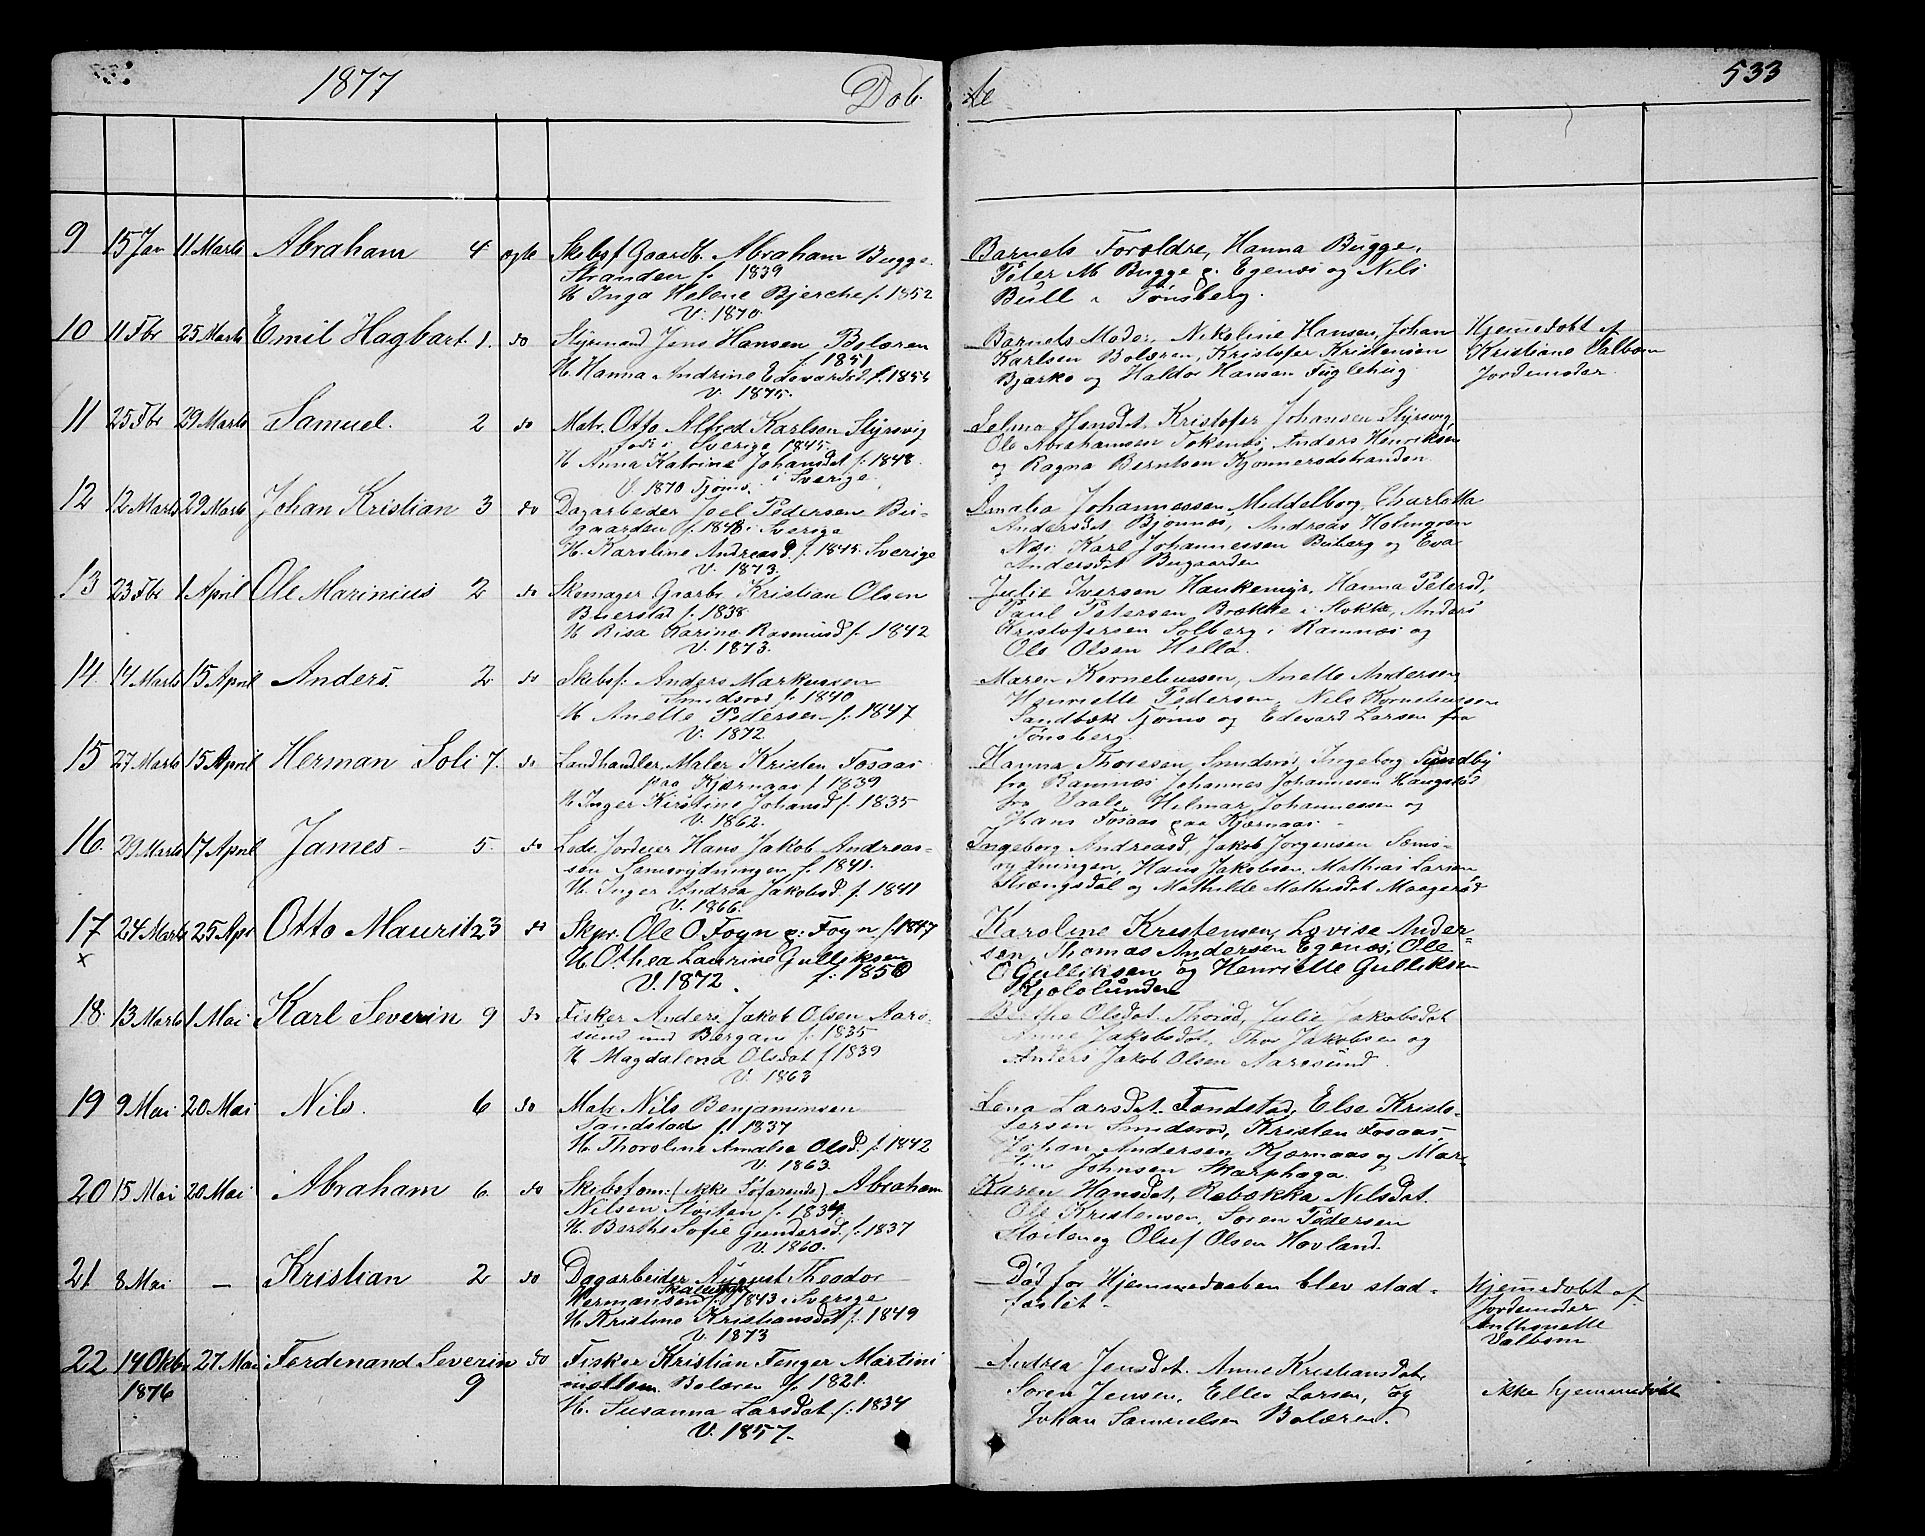 1877 Døb- te 533
9 15 Jan 11 Marts Abraham 4 ægte Skibsf Gaardb. Abraham Bugge
Stranden f. 1839
H Inga Helene Bjerche f. 1852
V. 1870.
Barnets Forældre, Hanna Bugge,
Peter M Bugge p. Egenæs og Nils
Bull i Tønsberg.
10 11 Fbr 25 Marts Emil Hagbart 1. do Styrmand Jens Hansen Bolæren
f. 1851
H. Hanna Andrine Edevardsd f. 1855
V. 1875.
Barnets Moder, Nikoline Hansen, Johan
Karlsen Bolæren, Kristofer Kristensen
Bjærkø og Haldor Hansen Fuglehug
Hjemmedøbt af
Kristiane Valbom
Jordemoder.
11 25 Fbr 29 Marts Samuel. 2 do Matr. Otto Alfred Karlsen Styrsvig
født i Sverige 1845.
H Anna Katrine Johansdt f. 1848.
V. 1870 Tjømø. i Sverige.
Selma Hansdt. Kristofer Johansen Styrsvig,
Ole Abrahamsen Tokenæs, Anders Henriksen
og Ragna Berntsen Kjønnerødstranden
12 12 Marts 29 Marts Johan Kristian 3 do Dagarbeder Joel Pedersen Bu-
gaarden f. 1848 i Sverige
H. Karoline Andreasd f. 1845. Sverige
V. 1873.
Amalia Johannessen Middelborg, Charlotta
Andersdt Bjønnes, Andreas Holmgren
Næs, Karl Johannessen Buberg og Eva
Andersdt Bugaarden
13 23 Fbr 1 April Ole Marinius 2 do Skomager Gaardbr Kristian Olsen
Buerstad f. 1838
H Risa Karine Rasmusd f. 1842
V. 1873.
Julie Iversen Haukemyr, Hanna Petersd,
Paul Petersen Brække i Stokke, Anders
Kristofersen Solberg i Ramnæs og
Ole Olsen Hella.
14. 14 Marts 15 April Anders. 2 do Skibsf. Anders Markussen
Smidsrød f. 1840
H Anette Pedersen f. 1847
V. 1872.
Maren Kornelieussen, Anette Andersen,
Henriette Pedersen, Nils Korneliussen
Sandbæk Tjømø og Edevard Larsen fra
Tønsberg.
15 27 Marts 15 April Herman Soli 7. do Landhandler, Maler Kristen Fosaas
paa Kjærnaas f 1839
H Inger Kirstine Johansd f. 1835
V. 1862.
Hanna Thoresen, Smidsrød, Ingeborg Sundby
fra Ramnæs Johannes Johannesen Haugstad
fra Vaale, Hilmar Johannessen og
Hans Fosaas paa Kjærnaas -
16. 29 Marts 17 April James - 5. do Lods Jordeier Hans Jakob Andreas-
sen Semsrydningen f. 1841.
H. Inger Andrea Jakobsd. f. 1841
V. 1866.
Ingeborg Andreasd, Jakob Jørgensen Sems-
rydningen, Hans Jakobsen, Mathias Larsen
Strængsdal og Mathilde Mathisdat Maagerød
17 24 Marts 25 Apr Otto Mauritz 3 do Skpr. Ole O. Foyn p. Foyn f. 1847
x
H. Othea Laurine Gulliksen
V. 1872. f. 1850
Karoline Kristensen, Lovise Ander-
sen, Thomas Andersen Egenæs, Ole
O. Gulliksen og Henriette Gulliksen
Kjølolunden
18. 13 Marts 1 Mai Karl Severin 9 do Fisker Anders Jakob Olsen Aarø-
sund und Bærgan f. 1835
H Magdalena Olsdat f 1839
V. 1863
Berthe Olsdat Thorød, Julie Jakobsdat
Anne Jakobsdat, Thor Jakobsen og
Anders Jakob Olsen Aarøsund.
19 9 Mai 20 Mai Nils. 6 do Matr. Nils Benjaminsen
Sandstad f. 1837
H. Thoroline Amalie Olsd. f. 1842
V. 1863.
Lena Larsdat. Sandstad, Else Kristo-
fersen Smidsrød, Kristen Fosaas,
Johan Andersen Kjærnaas og Mar-
tin Johnsen Skarphaga
20 15 Mai 20 Mai Abraham 6. do Skibstøm: (ikke Søfarende) Abraham
Nilsen Sloiten f. 1834.
H. Berthe Sofie Gundersd. f. 1837
V. 1860.
Karen Hansdat, Rebækka Nilsdat
Ole Kristensen, Søren Pedersen
Sloiten og Oluf Olsen Hovland.
21 8 Mai - Kristian 2 do Dagarbeider August Theodor
Hermansen f. 1843 i Sverige
H Kristine Kristiansdat f. 1849
V. 1873
Død før Hjemmedaaben blev stad-
fæstet -
Hjemmedøbt af
Jordemoder
Anthonette
Valbom
22 14 Oktbr 27 Mai Ferdenand Severin do Fisker Kristian Fenger Martini
1876 9 mellom Bolæren f. 1821.
H. Susanna Larsdat f. 1834
V. 1857.
Andrea Jensdat. Anne Kristiansdat,
Søren Jensen, Ellev Larsen, og
Johan Samuelsen Bolæren.
ikke hjemmedøbt